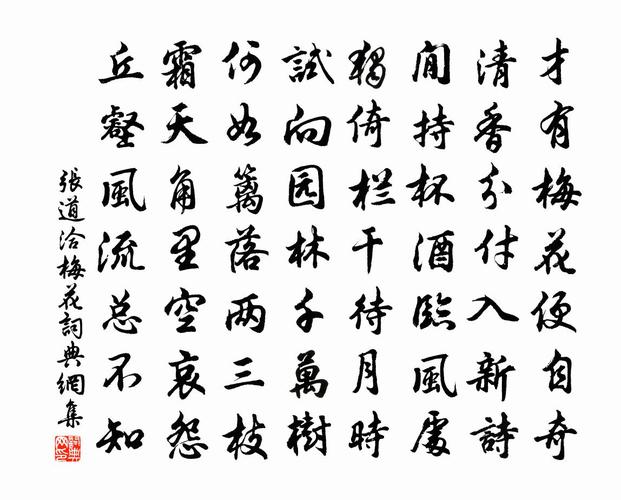 才有梅花便自奇
清香分付入新詩
閒持杯酒臨風處
独倚栏干待月時
試向园林千萬樹
何如篱落两三枝
霜天角里空哀怨
丘壑風流总不知
張道洽梅花詞典網集